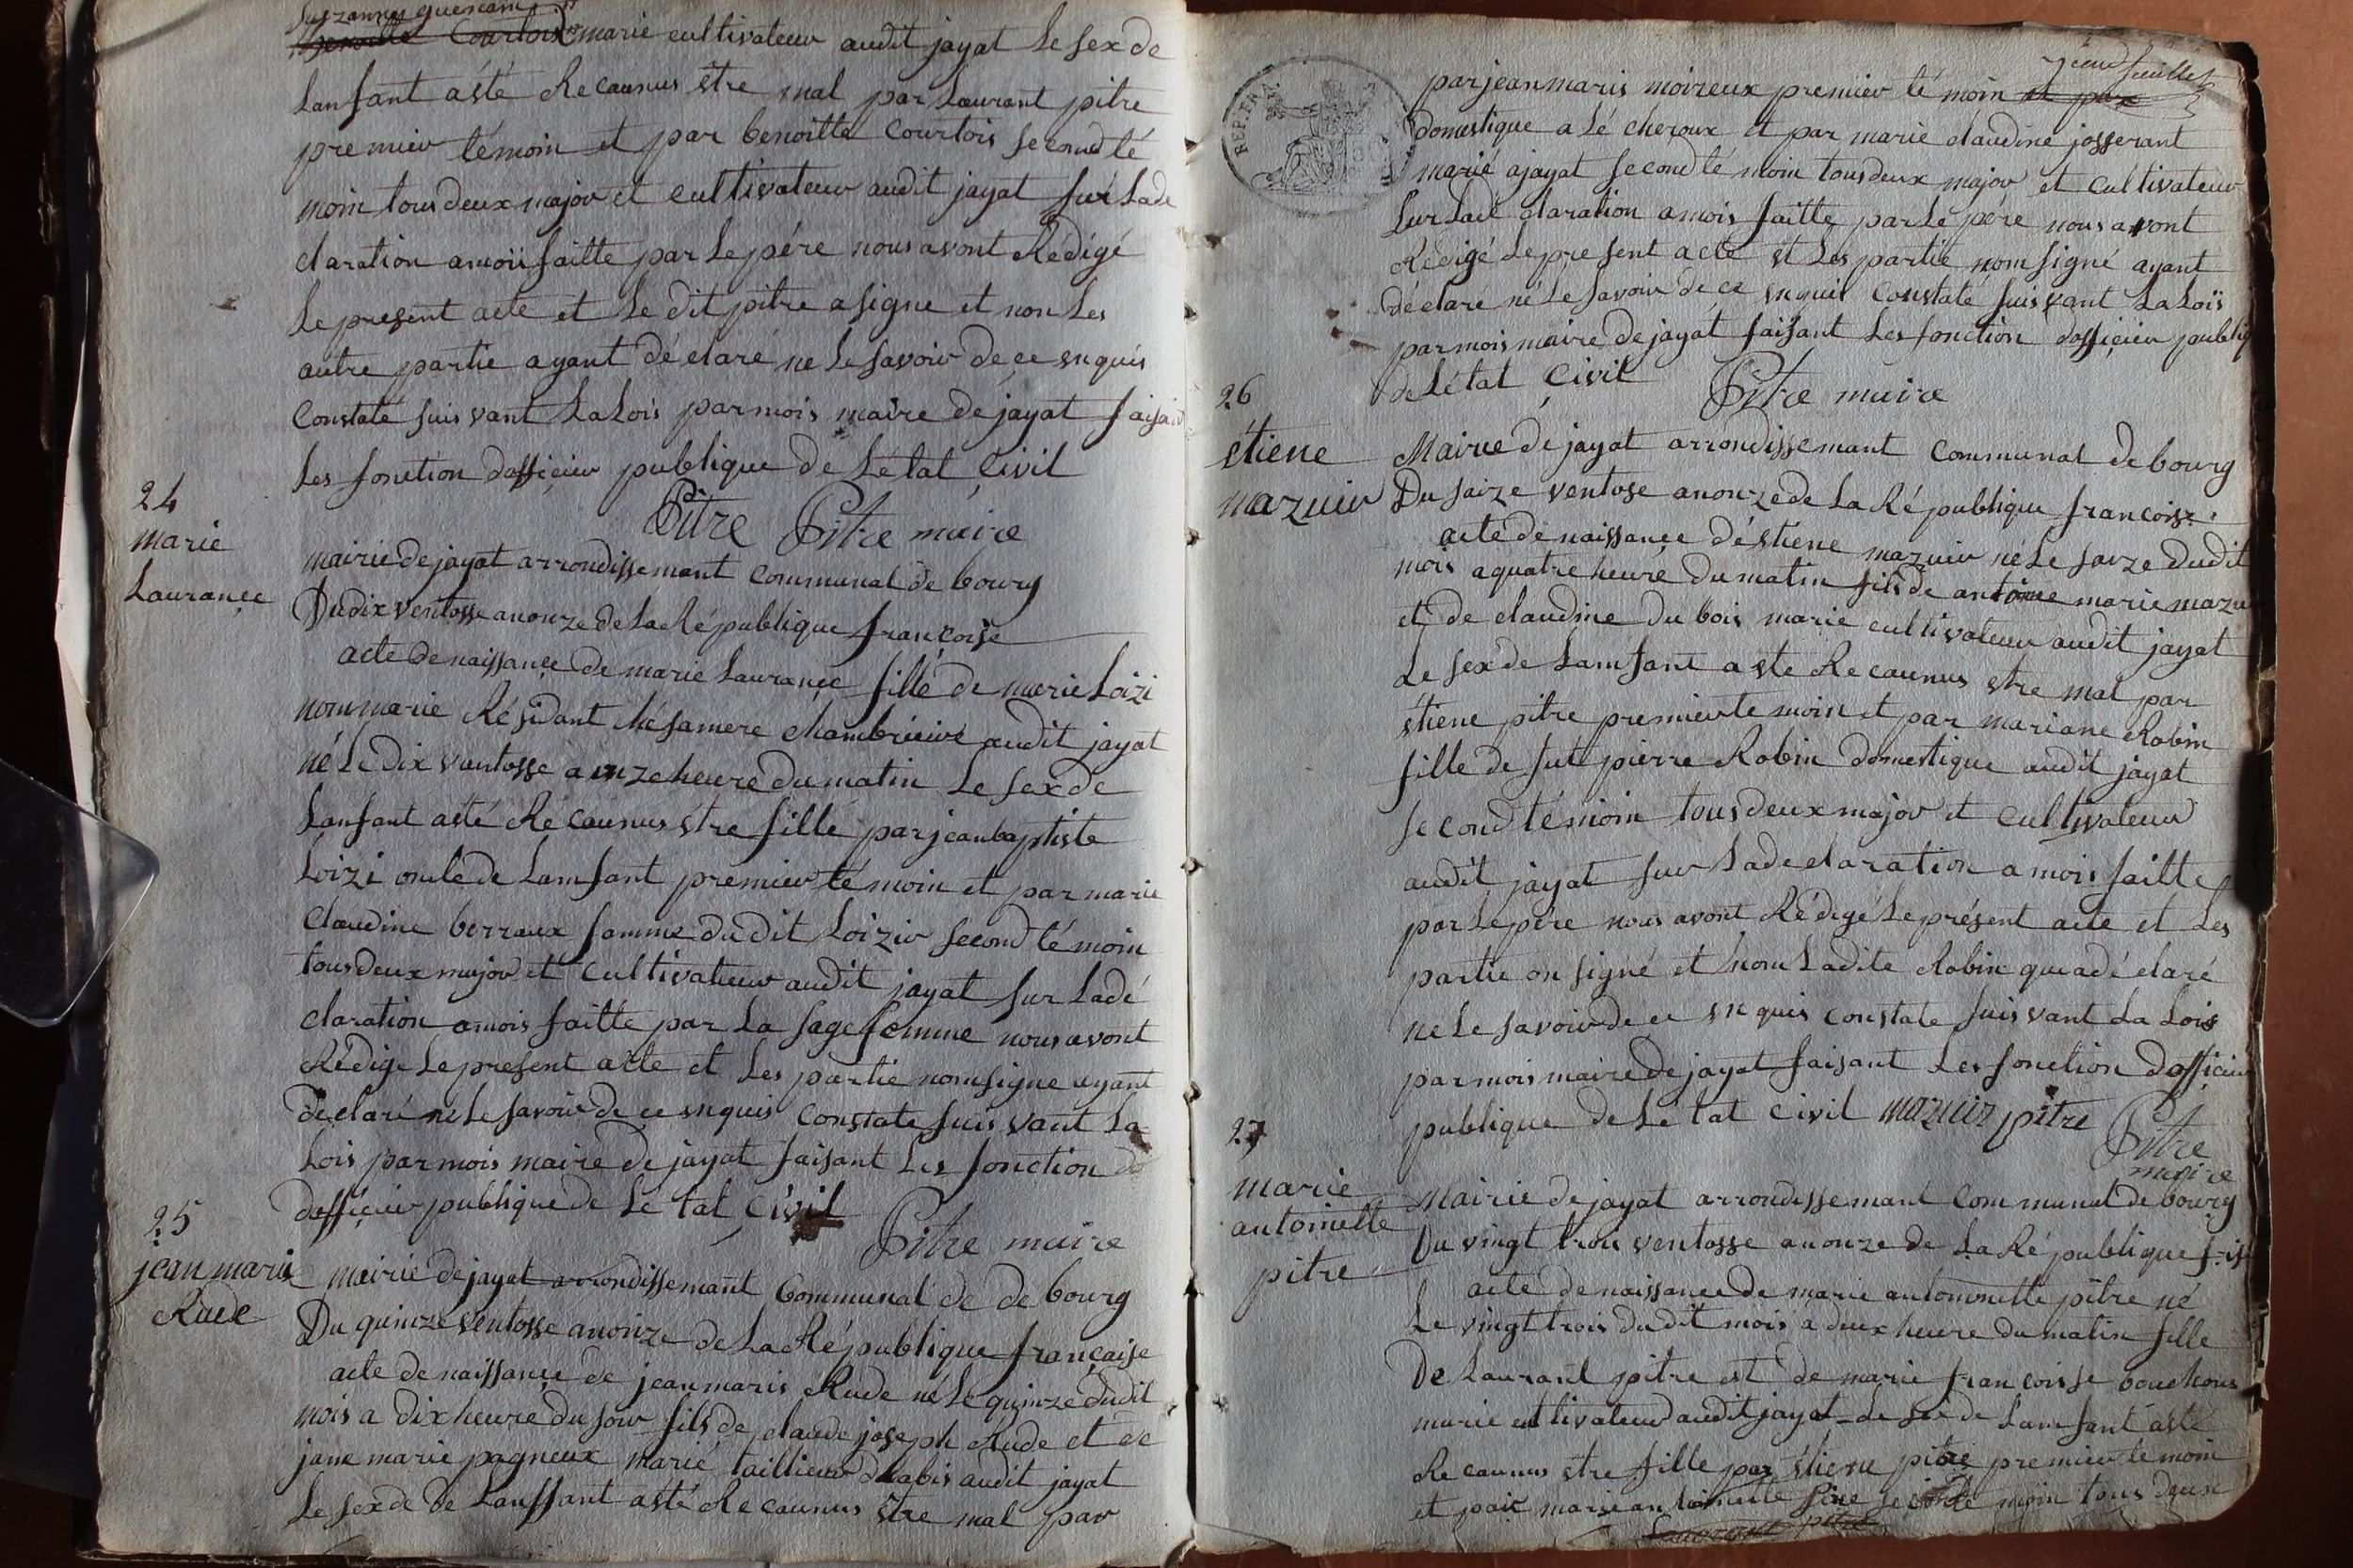 Suzanne guenam
benoitte Courtois marie cultivateur audit jayat Le sex de
Lanfant asté Recaunus être mal par Laurant pitre
premier témoin et par benoitte Courtois second té
moin tous deux major et cultivateur audit jayat sur Lade
claration amoii faitte par Le pére nous avont Redigé
Le present acte et Le dit pitre a signe et non Les
autre partie ayant déclaré ne Le savoir de ce enquis
Constaté suis vant La Lois par mois maire de jayat faisant
Les fonction dofficier publique de Létat Civil
Pitre Pitre maire
24
marie
Laurance
mairie de jayat arrondissemant communal de bourg
Du dix ventosse anonze de La République françoise
acte de naissance de marie Laurance fille de marie Loizi
nommarie Résidant ché samere chambriere audit jayat
né Le Dix vantosse a onze heure du matin Le sex de
Lanfant asté Récaunus être fille par jean baptiste
Loizi oncle de Lamfant premier témoin et par marie
Claudine berraux famme dudit Loizir second témoin
tous deux major et Cultivateur audit jayat sur Ladé
claration amois faitte par La sage femme nous avont
Redige Le present acte et Les partie nom signe ayant
declaré ne Le savoir de ce enquis Constate suis vant La
Lois par mois maire de jayat faisant Les fonction de
dofficier publique de Le tat Civil
Pitre maire
25
jean marie
Rude
mairie de jayat arrondissemant Communal de de bourg
Du quinze ventosse anonze de La République française
acte de naissance de jean maris Rude né Le quinze dudit
mois a dix heure du soir fils de claude joseph Rude et de
jane marie pagneux marié taillieur dhabis audit jayat
Le sex de de Lanffant asté Recaunus être mal par
jeandfeuillet
par jean maris moireux premier témoin et par
domestique a Lé cheroux et par marie claudine josserant
marié ajayat second témoin tous deux major et cultivateur
Sur Ladé claration amois faitte par Le pére nous avont
Redigé Le present acte et Les partie nom signé ayant
déclaré né Le savoir de ce enquis Constaté suis vant La Lois
par mois maire de jayat faisant Les fonction dofficier publiq
de Létat Civil Pitre maire
26
étiene
mazuir
Mairie de jayat arrondissemant communal de bourg
Du saize ventose anonze de La République françoise
acte de naissance d'étiene mazuir né Le saize Dudit
mois a quatre heure du matin fils de antoine marie mazu
et de claudine du bois marié cultivateur audit jayat
Le sex de Lamfant a ste Recaunus etre mal par
étiene pitre premier te moin et par mariane Robin
fille de fut pierre Robin domestique audit jayat
second témoin tous deux major et cultivateur
audit jayat sur Lade claration a mois faitte
par Le pére nous avont Rédigé Le présent acte et Les
partie on signé et nom Ladite Robin quia déclaré
ne Le savoir de ce enquis constate suis vant La Lois
par mois maire de jayat faisant Les fonction dofficier
publique de Lé tat Civil mazuir pitre Pitre
maire
27
marie
antoinette
pitre
Mairie de jayat arrondissemant communal de bourg
Du vingt trois ventosse anonze de La République frise
acte de naissance de marie antoinette pitre né
Le vingt trois du dit mois a deux heure du matin fille
De Laurant pitre et de marie francoisse bouchoux
marié cultivateur audit jayat Le sex de Lamfant asté
Re caunus etre fille par étiene pitre premier te moin
et par marie antoinette second témoin tous deux
Laurant pitre